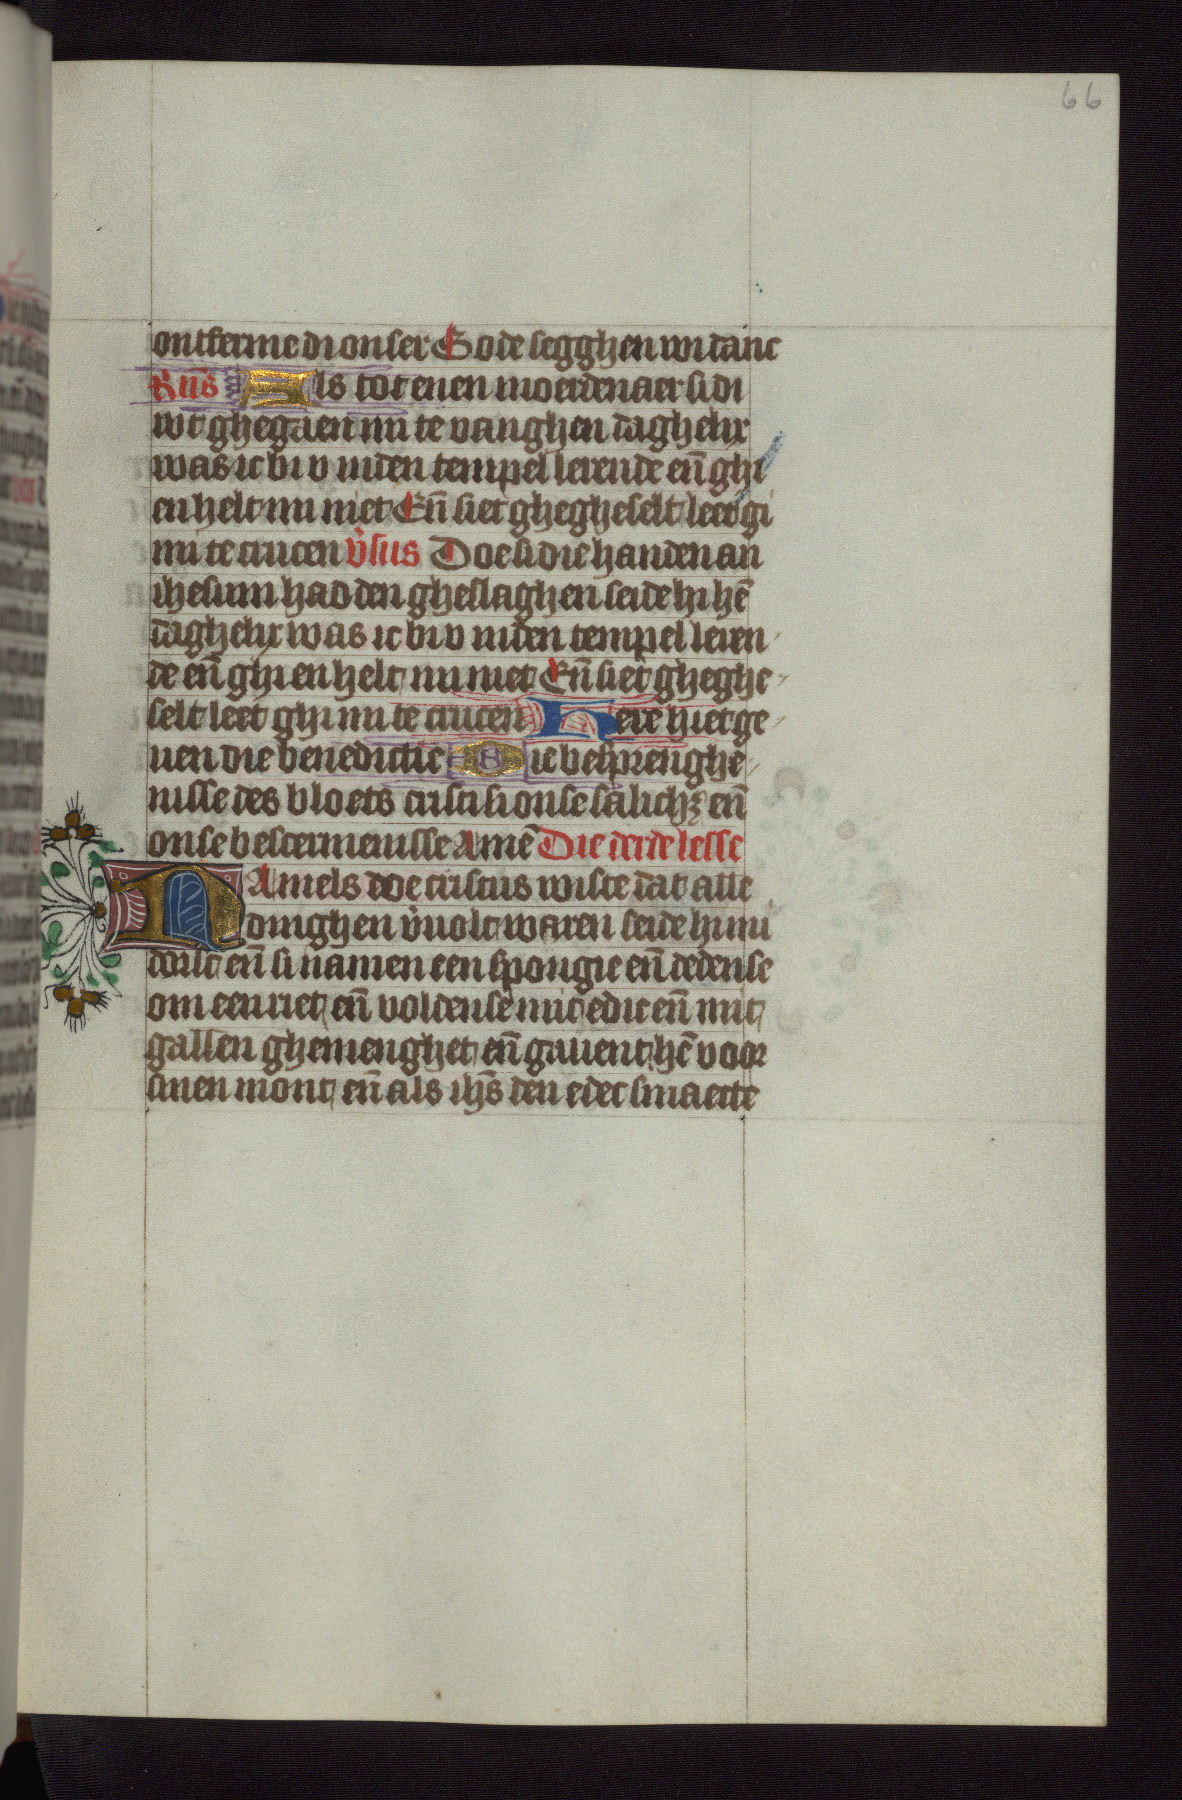 66
ontferme di onser Gode segghen wi danc
Rūs Als tot enen moerdenaer si di
wt ghegaen mi te vanghen daghelix
was ic bi v inden tempel lerende eñ ghi
en helt mi niet Eñ siet ghegheselt leet gi
mi te crucen v̄sus Doe si die handen an
ihesum hadden gheslaghen seide hi hē
daghelix was ic bi v inden tempel leren
de eñ ghi en helt mi niet Eñ siet gheghe
selt leet ghi mi te crucen Here hiet ge
uen die benedictie Die besprenghe
nisse des bloets cristi si onse salichz eñ
onse bescermenisse Amē Die derde lesse
NAmels doe cristus wiste dat alle
dinghen v̄uolt waren seide hi mi
dorst eñ si namen een spongie eñ dedense
om een riet eñ voldense mit edic eñ mit
gallen ghemenghet eñ gauent hē voor
sinen mont eñ als ihs̄ den edec smaecte